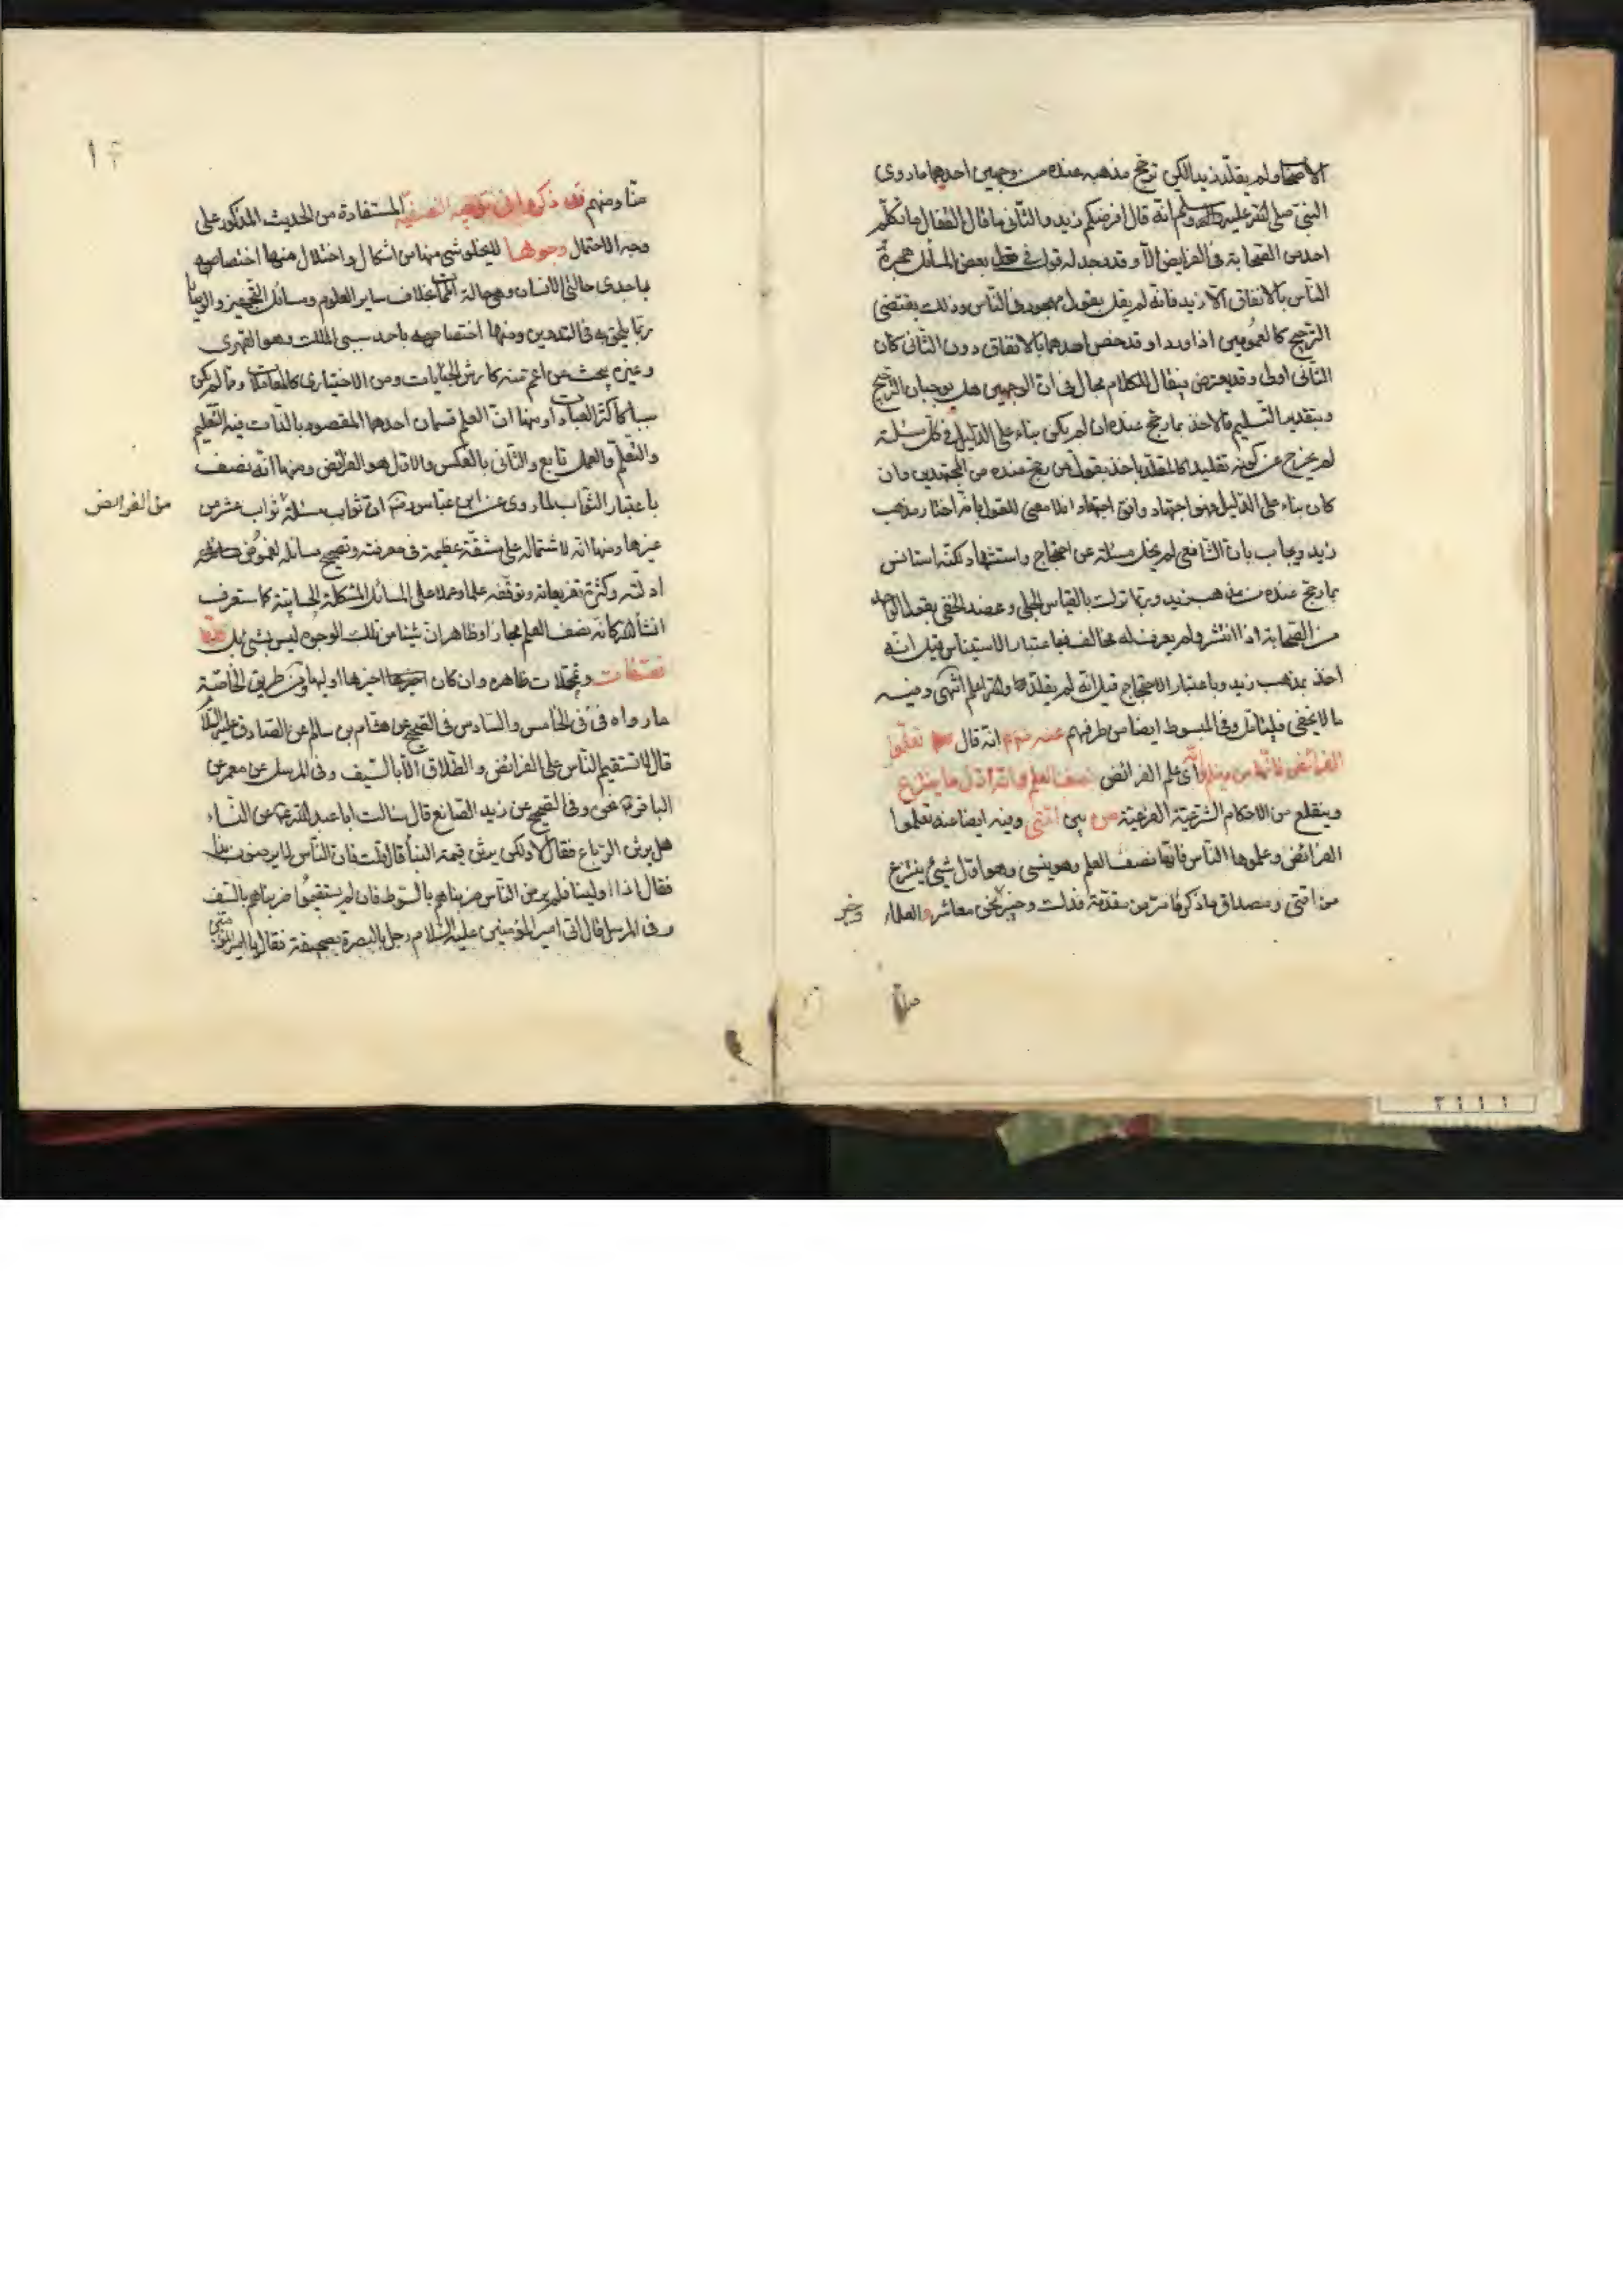 الاصحاب ولم يقلد زيدا لكن ترجح مذهبه عنده من وجهين احدهما ما روى
النبي صلى الله عليه وآله وسلم انه قال افرضكم زيد والثاني ما قال القفال ما تكلم
احد من الصحابة في الفرايض الا وقد وجد له قول في بعض المسائل هجره
الناس بالاتفاق الا زيد فانه لم يقل بقول مهجور في الناس وذلك يقتضى
الترجيح كالعمومين اذا وردا وقد خص احدهما بالاتفاق دون الثاني كان
الثاني اولى وقد يعترض فيقال للكلام مجال في ان الوجهين هل يوجبان الترجيح
وبتقدير التسليم فالاخذ بما رجح عنده ان لم يكن بناء على الدليل في كل مسئلة
لم يخرج عن كونه تقليدا كالمقلد ياخذ بقول من رجح عنده من المجتهدين وان
كان بناء على الدليل فهو اجتهاد وافق اجتهادا فلا معنى للقول بانه اختار مذهب
زيد ويجاب بان الشافعي لم يخل مسئلة عن احتجاج واستشهاد لكنه استانس
بما رجح عنده من مذهب زيد وربما ترك بالقياس الجلي وعضد الخفي بقول الواحد
من الصحابة اذا انتشر ولم يعرف له مخالف فباعتبار الاستيناس قيل انه
اخذ بمذهب زيد وباعتبار الاحتجاج قيل انه لم يقلده والله اعلم انتهى وفيه
ما لا يخفى فليتامل وفي المبسوط ايضا من طرقهم عنه انه قال تعلموا
الفرائض فانها من دينكم وانه اى علم الفرائض نصف العلم وانه اول ما ينتزع
وينقلع من الاحكام الشرعية الفرعية من بين امتى وفيه ايضا عنه تعلموا
الفرائض وعلموها الناس فانها نصف العلم وهو ينسى وهو اول شئ ينتزع
من امتى ومصداق ما ذكر ما مر من مقدمة فدك وخبر نحن معاشر والعلماء
وخبر
١٢
منا ومنهم قد ذكروا في توجيه النصفية المستفادة من الحديث المذكور على
وجه الاحتمال وجوها لا يخلو شئ منها من اشكال واختلال منها اختصاصه
باحدى حالتي الانسان وهي حالة الممات بخلاف ساير العلوم ومسائل التجهيز والوصايا
ربما يلحق به في التدوين ومنها اختصاصه باحد سببى الملك وهو القهرى
وغيره يبحث عن اعم منه كارش الجنايات ومن الاختيارى كالمعاملات وما لم يكن
سببا كاكثر العبادات ومنها ان العلم قسمان احدهما المقصود بالذات فيه التعليم
والتعلم والعمل تابع والثاني بالعكس والاول هو الفرائض ومنها انه نصف
باعتبار الثواب لما روى عن ابن عباس رضه ان ثواب مسئلة ثواب عشر من
من الفرايض
غيرها ومنها انه لاشتماله على مشقة عظيمة في معرفته وتصحيح مسائله لغموض
ادلته وكثرة تفريعاته وتوقفه علما وعملا على المسائل المشكلة الحسابية كما ستعرف
انشاالله كانه نصف العلم مجازا وظاهر ان شيئا من تلك الوجوه ليس بشئ بل كلها
تعسفات وتمحلات ظاهره وان كان اخيرها اولها ومن طريق الخاصة
ما رواه في في الخامس والسادس في الصحيح عن هشام بن سالم عن الصادق عليه السلام
قال لا تستقيم الناس على الفرائض والطلاق الا بالسيف وفي المرسل عن معمر عن
الباقر نحوه وفي الصحيح عن زيد الصانع قال سالت ابا عبدالله ع عن النساء
هل يرثن الرباع فقال لا ولكن يرثن قيمة البناء قال قلت فان الناس لا يرضون بذا
فقال اذا ولينا فلم يرض الناس ضربناهم بالسوط فان لم يستقيموا ضربناهم بالسيف
وفي المرسل قال اتى امير المؤمنين عليه السلام رجل بالبصرة بصحيفة فقال يا امير المؤمنين